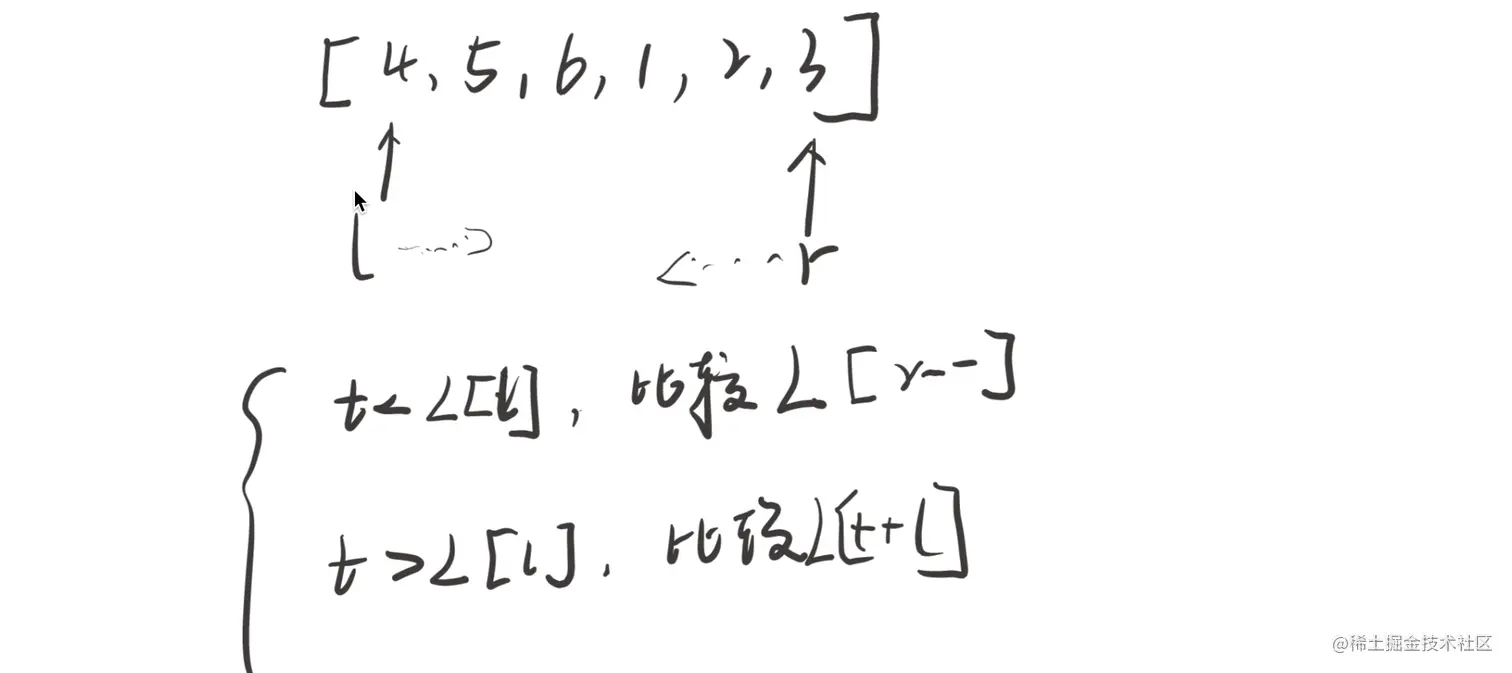 [4, 5, 6, 1, 2, 3]
l
r
t < L[l], 比较 L[r--]
t > L[l], 比较 L[++l]
@稀土掘金技术社区